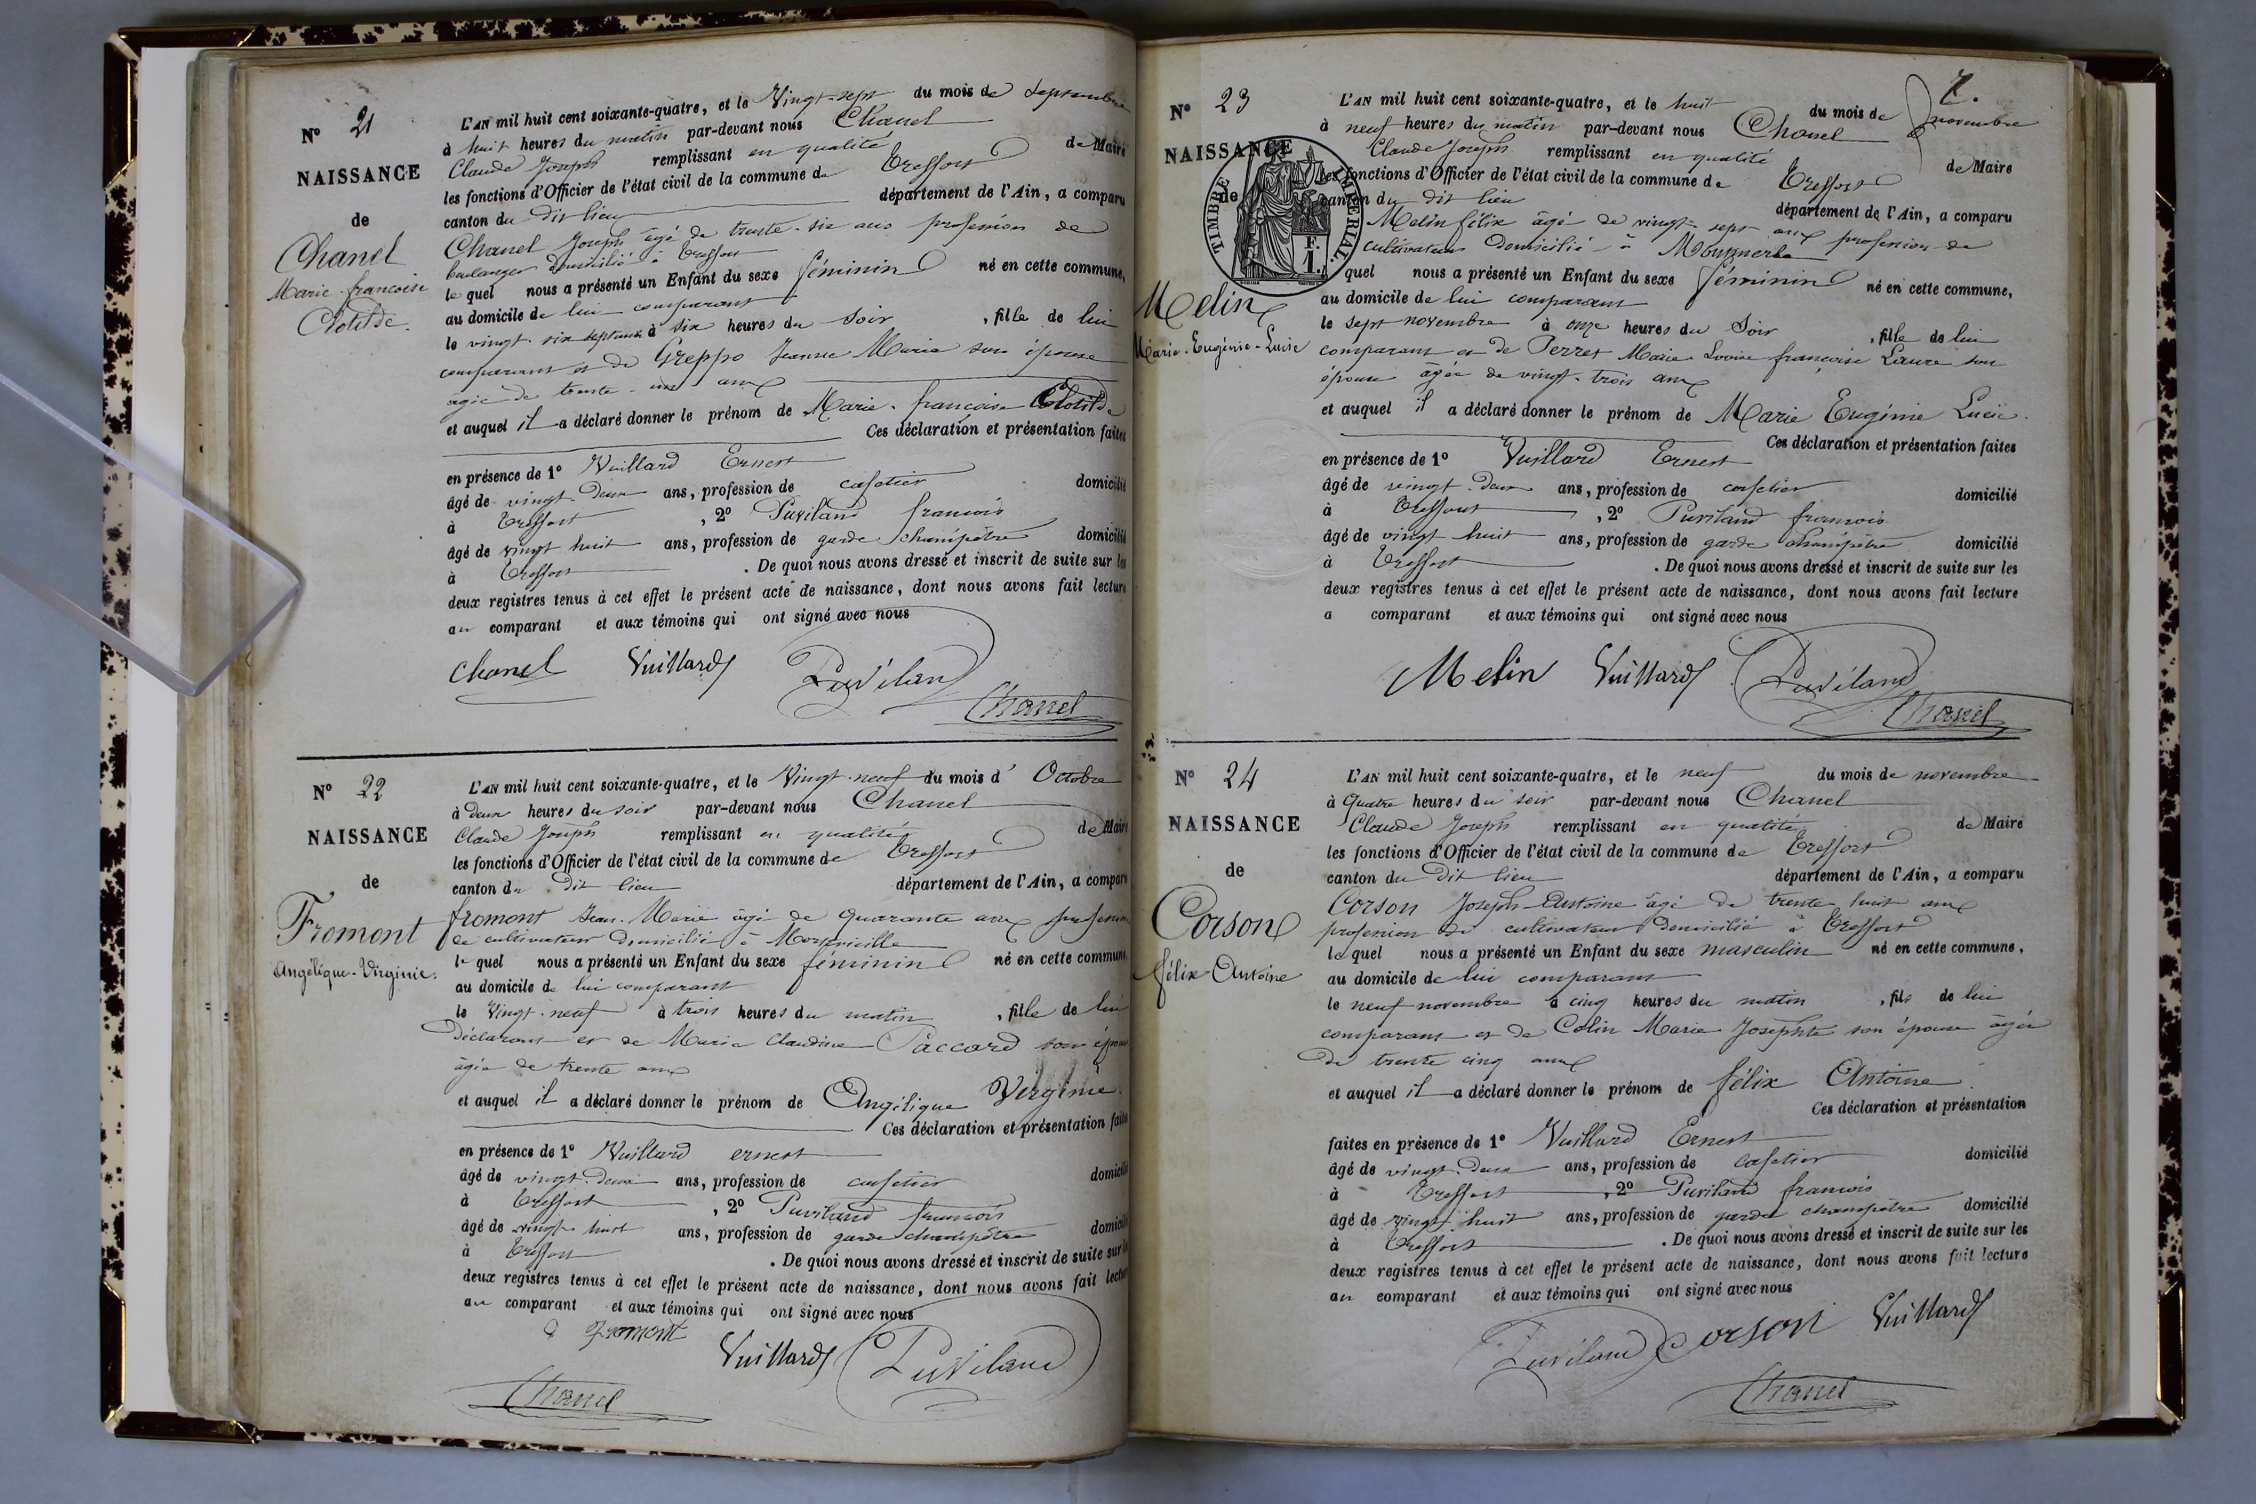 N° 21
NAISSANCE
de
Chanel
Marie-françoise
Clotilde.
L'AN mil huit cent soixante-quatre, et le Vingt-sept du mois de septembre
à huit heures du matin par-devant nous Chanel
Claude Joseph remplissant en qualité de Maire
les fonctions d'Officier de l'état civil de la commune de Treffort
canton du dit lieu département de l'Ain, a comparu
Chanel Joseph âgé de trente-six ans profession de
boulanger domicilié à Treffort
lequel nous a présenté un Enfant du sexe féminin né en cette commune,
au domicile de lui comparant
le vingt-six septembre à six heures du soir, fille de lui
comparant et de Greppo Jeanne Marie son épouse
agée de trente-un ans
et auquel il a déclaré donner le prénom de Marie-françoise Clotilde
Ces déclaration et présentation faites
en présence de 1° Vuillard Ernest
âgé de vingt-deux ans, profession de cafetier domicilié
à Treffort, 2° Puviland francois
âgé de vingt huit ans, profession de garde champêtre domicilié
à Treffort. De quoi nous avons dressé et inscrit de suite sur les
deux registres tenus à cet effet le présent acte de naissance, dont nous avons fait lecture
au comparant et aux témoins qui ont signé avec nous
Chanel Vuillard Puviland
Chanel
N° 22
NAISSANCE
de
Fromont
Angélique-Virginie.
L'AN mil huit cent soixante-quatre, et le Vingt-neuf du mois d'Octobre
à deux heures du soir par-devant nous Chanel
Claude Joseph remplissant en qualité de Maire
les fonctions d'Officier de l'état civil de la commune de Treffort
canton du dit lieu département de l'Ain, a comparu
fromont Jean-Marie âgé de quarante ans profession
de cultivateur domicilié à
lequel nous a présenté un Enfant du sexe féminin né en cette commune,
au domicile de lui comparant
le Vingt-neuf à trois heures du matin, fille de lui
déclarant et de Marie Claudine Paccard son épouse
agée de trente ans
et auquel il a déclaré donner le prénom de Angélique Virginie.
Ces déclaration et présentation faites
en présence de 1° Vuillard ernest
âgé de vingt-deux ans, profession de cafetier domicilié
à Treffort, 2° Puviland francois
âgé de vingt huit ans, profession de garde champêtre domicilié
à Treffort. De quoi nous avons dressé et inscrit de suite sur les
deux registres tenus à cet effet le présent acte de naissance, dont nous avons fait lecture
au comparant et aux témoins qui ont signé avec nous
fromont Vuillard Puviland
Chanel
7.
N° 23
NAISSANCE
de
TIMBRE IMPÉRIAL.
F.
1.
Melin
Marie-Eugénie-Lucie
L'AN mil huit cent soixante-quatre, et le huit du mois de novembre
à neuf heures du matin par-devant nous Chanel
Claude Joseph remplissant en qualité de Maire
les fonctions d'Officier de l'état civil de la commune de Treffort
canton du dit lieu département de l'Ain, a comparu
Melin félix âgé de vingt-sept ans profession de
cultivateur domicilié à
quel nous a présenté un Enfant du sexe féminin né en cette commune,
au domicile de lui comparant
le sept novembre à onze heures du soir, fille de lui
comparant et de Perret Marie Louise françoise Laure son
épouse agée de vingt-trois ans
et auquel il a déclaré donner le prénom de Marie Eugénie Lucie.
Ces déclaration et présentation faites
en présence de 1° Vuillard Ernest
âgé de vingt-deux ans, profession de cafetier domicilié
à Treffort, 2° Puviland francois
âgé de vingt-huit ans, profession de garde champêtre domicilié
à Treffort. De quoi nous avons dressé et inscrit de suite sur les
deux registres tenus à cet effet le présent acte de naissance, dont nous avons fait lecture
a comparant et aux témoins qui ont signé avec nous
Melin Vuillard Puviland
Chanel
N° 24
NAISSANCE
de
Corson
félix-Antoine
L'AN mil huit cent soixante-quatre, et le neuf du mois de novembre
à quatre heures du soir par-devant nous Chanel
Claude Joseph remplissant en qualité de Maire
les fonctions d'Officier de l'état civil de la commune de Treffort
canton du dit lieu département de l'Ain, a comparu
Corson Joseph-Antoine âgé de trente huit ans
profession de cultivateur domicilié à Treffort
lequel nous a présenté un Enfant du sexe masculin né en cette commune,
au domicile de lui comparant
le neuf novembre à cinq heures du matin, fils de lui
comparant et de Colin Marie Josephte son épouse âgée
de trente cinq ans
et auquel il a déclaré donner le prénom de félix Antoine.
Ces déclaration et présentation
faites en présence de 1° Vuillard Ernest
âgé de vingt-deux ans, profession de cafetier domicilié
à Treffort, 2° Puviland francois
âgé de vingt huit ans, profession de garde champêtre domicilié
à Treffort. De quoi nous avons dressé et inscrit de suite sur les
deux registres tenus à cet effet le présent acte de naissance, dont nous avons fait lecture
au comparant et aux témoins qui ont signé avec nous
Puviland Corson Vuillard
Chanel